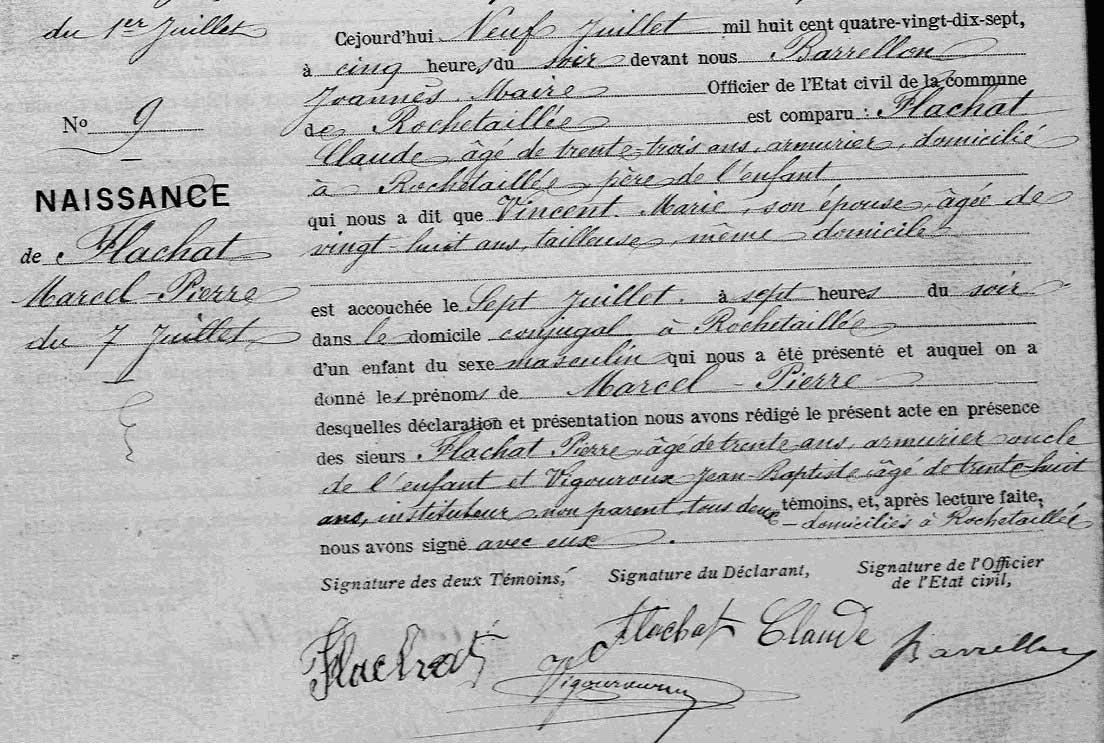 du 1er Juillet
Nº 9
NAISSANCE
de Flachat
Marcel-Pierre
du 7 Juillet
Cejourd'hui Neuf Juillet mil huit cent quatre-vingt-dix-sept,
à cinq heures du soir devant nous Barrellon
Joannès Maire Officier de l'Etat civil de la commune
de Rochetaillée est comparu : Flachat
Claude, âgé de trente-trois ans, armurier, domicilié
à Rochetaillée, père de l'enfant
qui nous a dit que Vincent Marie, son épouse, âgée de
vingt-huit ans, tailleuse, même domicile
est accouchée le Sept Juillet à sept heures du soir
dans le domicile conjugal, à Rochetaillée
d'un enfant du sexe masculin qui nous a été présenté et auquel on a
donné les prénoms de Marcel - Pierre
desquelles déclaration et présentation nous avons rédigé le présent acte en présence
des sieurs Flachat Pierre, âgé de trente ans, armurier oncle
de l'enfant et Vigouroux Jean-Baptiste, âgé de trente-huit
ans, instituteur non parent, tous deux témoins, et, après lecture faite,
- domiciliés à Rochetaillée
nous avons signé avec eux.
Signature des deux Témoins, Signature du Déclarant, Signature de l'Officier
de l'Etat civil,
Flachat Flachat Claude Barrellon
Vigouroux